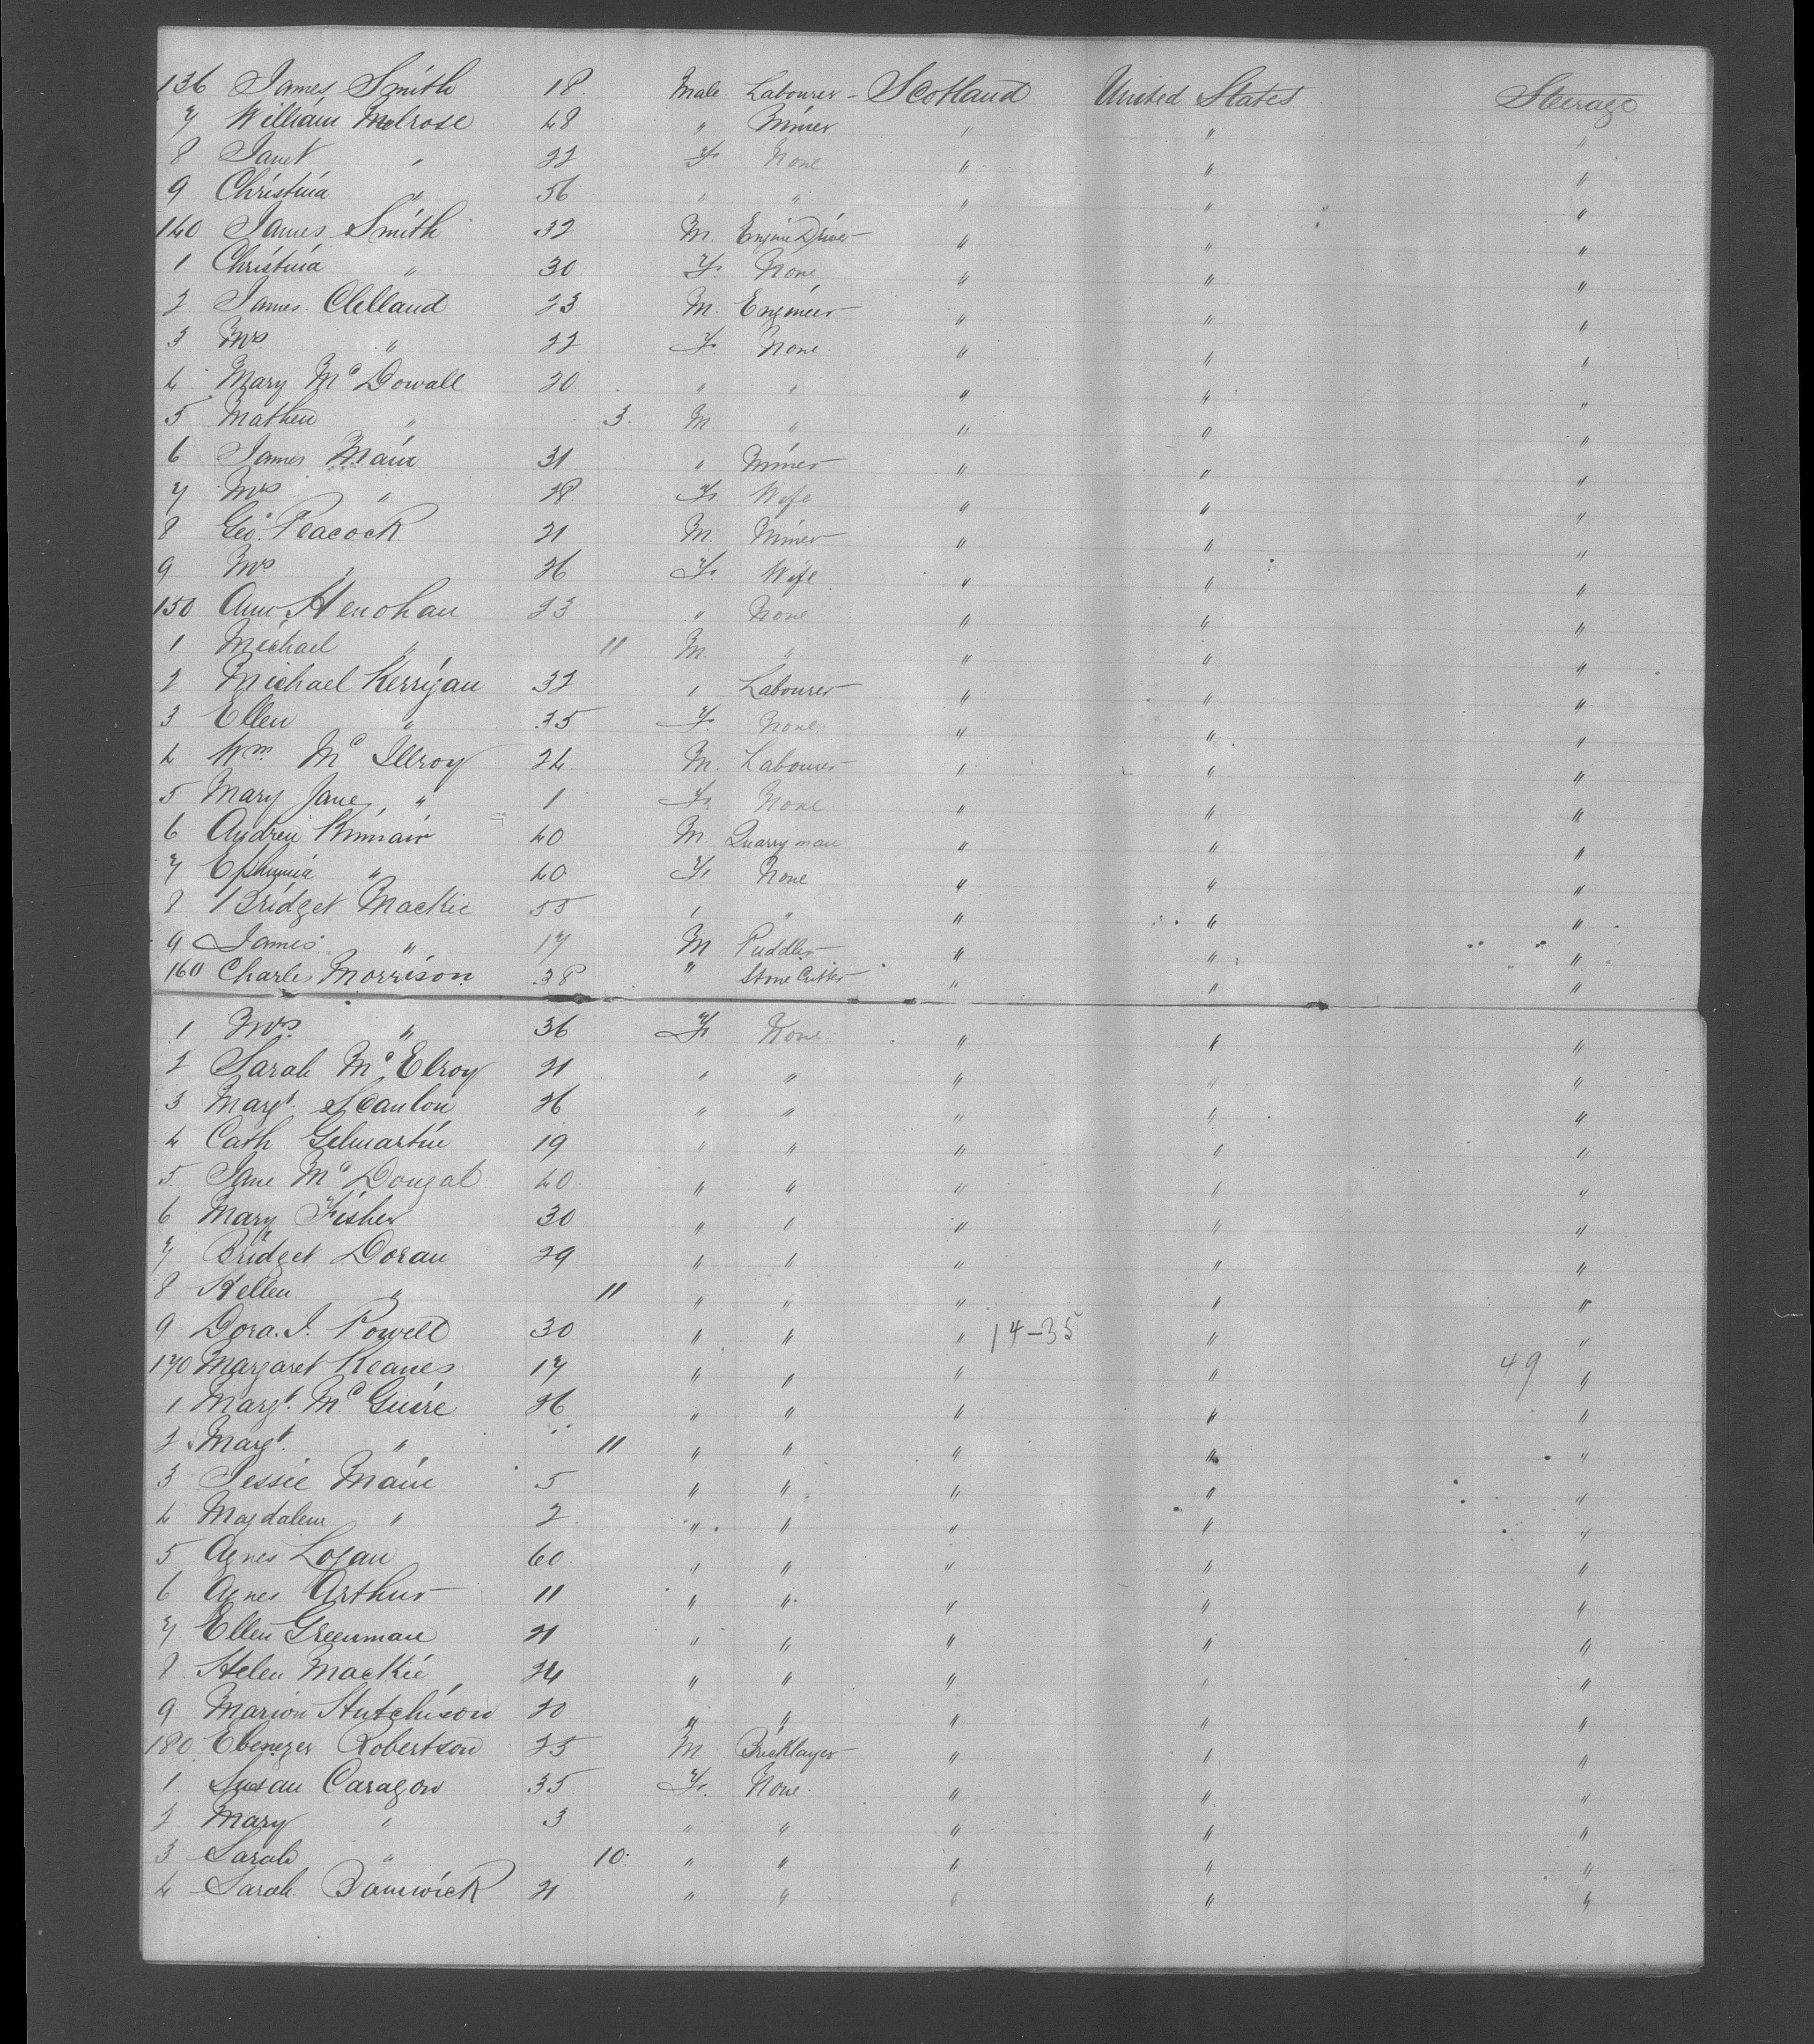 136 James Smith 18 Male Labourer Scotland United States Steerage
7 William Melrose 48 " Miner " " "
8 Janet " 22 F. None " " "
9 Christina " 56 " " " " "
140 James Smith 32 M. Engine Driver " " "
1 Christina " 30 F. None " " "
2 James Clelland 23 M. Engineer " " "
3 Mrs " 22 F. None " " "
4 Mary McDowall 20 " " " " "
5 Mathew " 3 M. " " " "
6 James Main 31 " Miner " " "
7 Mrs " 28 F. Wife " " "
8 Geo. Peacock 21 M. Miner " " "
9 Mrs " 26 F. Wife " " "
150 Ann Henohan 23 " None " " "
1 Michael " 11 M. " " " "
2 Michael Kerrigan 32 " Labourer " " "
3 Ellen " 35 F. None " " "
4 Wm. Mc Illroy 24 M. Labourer " " "
5 Mary Jane " 1 F. None " " "
6 Andrew Kinnair 40 M. Quarryman " " "
7 Ephumia " 40 F. None " " "
8 Bridget Mackie 55 " " " " "
9 James " 17 M Puddler " " "
160 Charles Morrison 38 " Stone Cutter " " "
1 Mrs. " 36 F. None " " "
2 Sarah McElroy 21 " " " " "
3 Margt. Scanlon 26 " " " " "
4 Cath Gilmartin 19 " " " " "
5 Jane McDougal 40 " " " " "
6 Mary Fisher 30 " " " " "
7 Bridget Doran 29 " " " " "
8 Hellen " 11 " " " " "
9 Dora. J. Powell 30 " " " 14-35 " "
170 Margaret Keanes 17 " " " " 49 "
1 Margt. McGuire 26 " " " " "
2 Margt. " 11 " " " " "
3 Jessie Main 5 " " " " "
4 Magdalene " 2 " " " " "
5 Agnes Logan 60 " " " " "
6 Agnes Arthur 11 " " " " "
7 Ellen Greenman 21 " " " " "
8 Helen Mackie 24 " " " " "
9 Marion Hutchison 20 " " " " "
180 Ebenezer Robertson 25 M Bricklayer " " "
1 Susan Caragow 35 F. None " " "
2 Mary " 3 " " " " "
3 Sarah " 10 " " " " "
4 Sarah 21 " " " " "